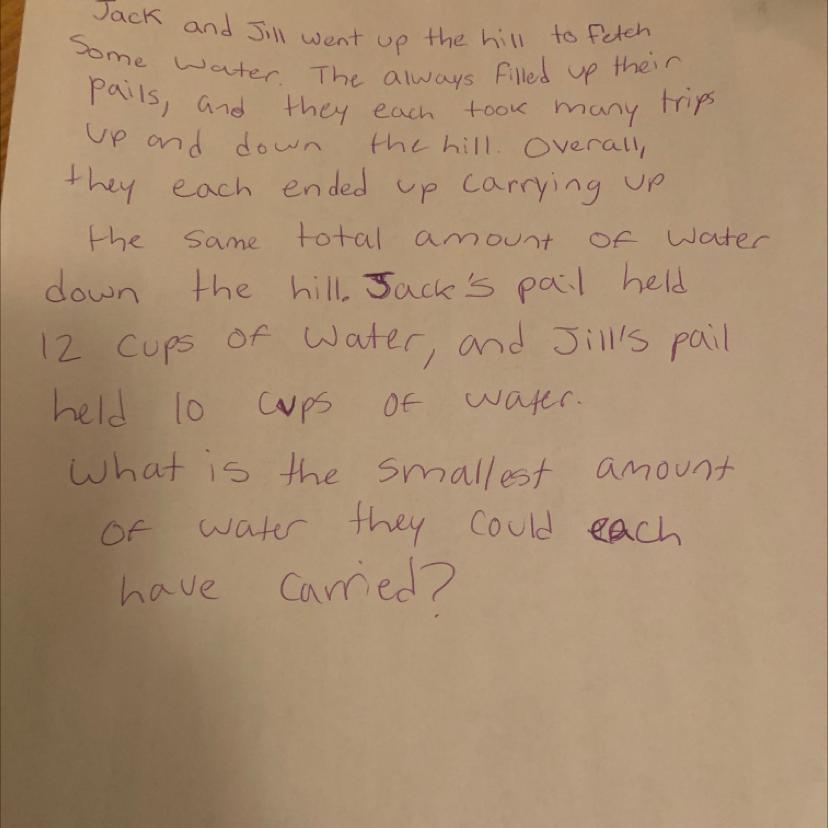 Jack and Jill went up the hill to fetch
Some water. The always filled up their
pails, and they each took many trips
up and down the hill. Overall,
they each ended up carrying up
the same total amount of water
down the hill. Jack's pail held
12 cups of water, and Jill's pail
held 10 cups of water.
What is the smallest amount
of water they could each
have carried?